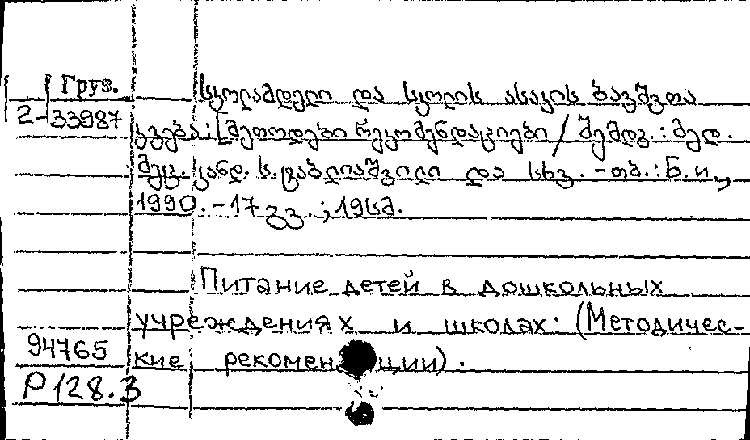 Груз.
2-33987
სკოლამდელი და სკოლის ასაკის ბავშვთა
კვება: [მეთოდური რეკომენდაციები / შემდგ.: მედ.
მეც. კანდ. ს. და სხვ. - თბ.: Б. и.,
1990. - 17 გვ. ; 19სმ.
Питание детей в дошкольных
учреждениях и школах: (Методичес-
кие).
94765
Р 128.3